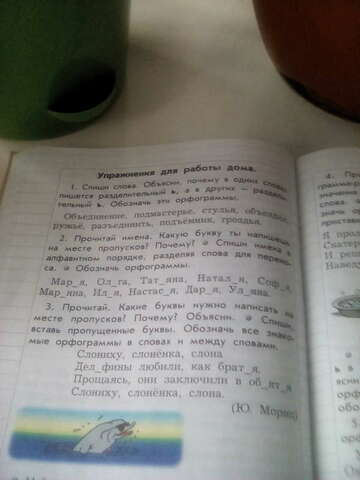 Упражнения для работы дома.
1. Спиши слова. Объясни, почему в одних словах
пишется разделительный ъ, а в других — раздели-
тельный ь. Обозначь эти орфограммы.
Объединение, подмастерье, стулья, объездчик,
ружьё, разъединить, подъёмник, гроздья.
2. Прочитай имена. Какую букву ты напишешь
на месте пропусков? Почему? Спиши имена в
алфавитном порядке, разделяя слова для перено-
са. Обозначь орфограммы.
Мар_я, Ол_га, Тат_яна, Натал_я, Соф_я,
Мар_яна, Ил_я, Настас_я, Дар_я, Ул_яна.
3. Прочитай. Какие буквы нужно написать на
месте пропусков? Почему? Объясни. Спиши,
вставь пропущенные буквы. Обозначь все знако-
мые орфограммы в словах и между словами.
Слониху, слонёнка, слона
Дел_фины любили, как брат_я.
Прощаясь, они заключили в об_ят_я
Слониху, слонёнка, слона.
(Ю. Мориц)
4. Про
грамм
значен
слове.
Я прод
Скатер
И реш